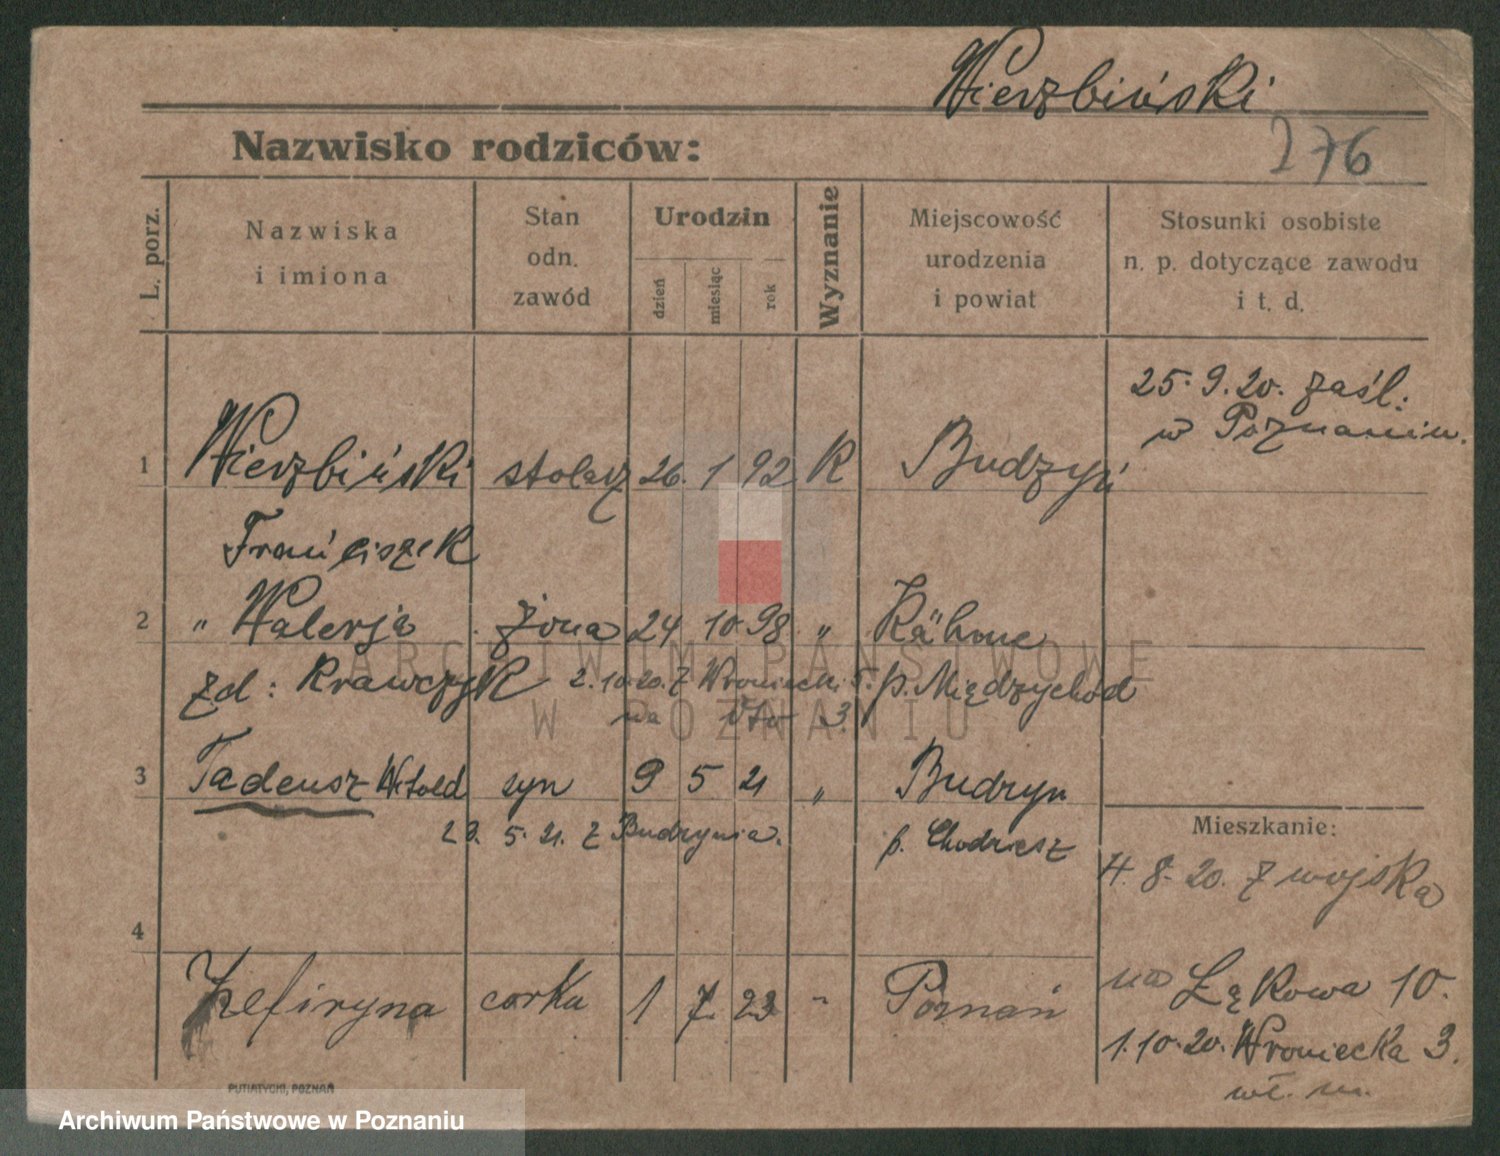 Wierzbiński
Nazwisko rodziców:
276
L. porz.
Nazwiska
i imiona
Stan
odn.
zawód
Urodzin
dzień
miesiąc
rok
Wyznanie
Miejscowość
urodzenia
i powiat
Stosunki osobiste
n. p. dotyczące zawodu
i t. d.
25. 9. 20. zaśl:
w Poznaniu.
1 Wierzbiński stolarz 26. 1 92 K Budzyń
Franciszek
2 " Walerja żona 24 10 98 " Kähme
zd: Krawczyk 2. 10. 20. z p. Międzychód
na 3
3 Tadeusz Witold syn 9 5 21 " Budzyn
23. 5. 21. z Budzynia. p. Chodziesz
Mieszkanie:
4. 8. 20. z wojska
4
Zefiryna corka 1 7. 23 " Poznań
na Łąkowa 10.
1. 10. 20. Wroniecka 3.
wł. m.
PUTIATYCKI, POZNAŃ
ARCHIWUM PAŃSTWOWE
W POZNANIU
Archiwum Państwowe w Poznaniu